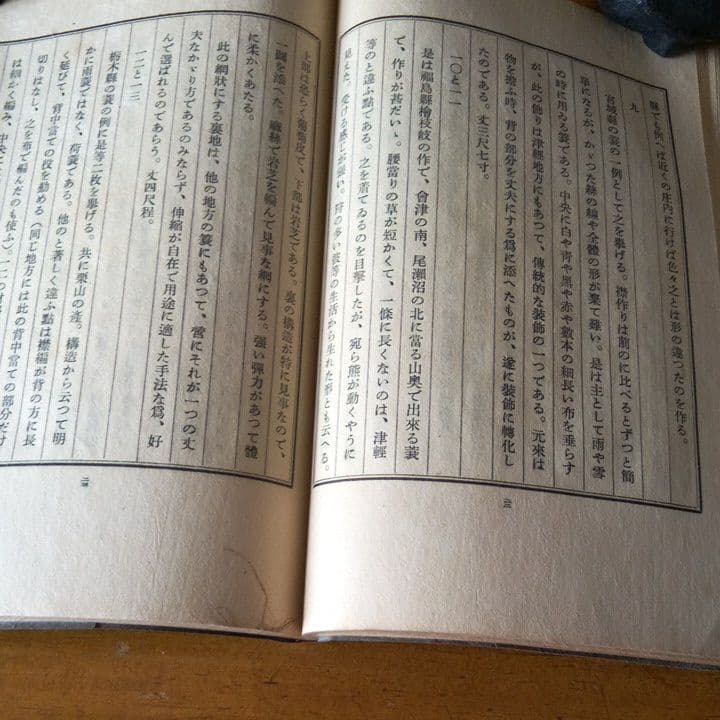 縣でも例へば近くの庄内に行けば色々之とは形の違つたのを作る。
九
宮城縣の蓑の一例として之を擧げる。襟作りは前のに比べるとずつと簡
單になるが、かゞつた絲の線や全體の形が棄て難い。是は主として雨や雪
の時に用ゐる蓑である。中央に白や青や黒や赤や數本の細長い布を垂らす
が、此の飾りは津輕地方にもあつて、傳統的な裝飾の一つである。元來は
物を擔ふ時、背の部分を丈夫にする爲に添へたものが、遂に裝飾に轉化し
たのである。丈三尺七寸。
一〇と一一
是は福島縣檜枝岐の作で、會津の南、尾瀬沼の北に當る山奧で出來る蓑
で、作りが甚だいゝ。腰當りの草が短かくて、一條に長くないのは、津輕
等のと違ふ點である。之を着てゐるのを目擊したが、宛ら熊が動くやうに
見えた。受ける感じが強い。狩の多い彼等の生活から生れた形とも云へる。
二三
上部は恐らく葡萄皮で、下部は岩芝である。裏の構造が特に見事なので、
一圖を添へた。麻絲で岩芝を編んで見事な綱にする。强い彈力があつて體
に柔かくあたる。
此の網狀にする裏地は、他の地方の蓑にもあつて、啻にそれが一つの丈
夫なかゞり方であるのみならず、伸縮が自在で用途に適した手法な爲、好
んで選ばれるのであらう。丈四尺程。
一二と一三
栃木縣の蓑の例に是等二枚を擧げる。共に栗山の產。構造から云つて明
かに雨蓑ではなく、荷蓑である。他のと著しく違ふ點は襟編が背の方に長
く延びて、背中當ての役を勤める（同じ地方には此の背中當ての部分だけ
切りはなし、之を布で編んだのも使ふ）。
は細かく編み、中央に
二四